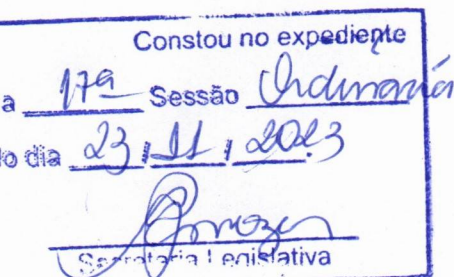 Constou no expediente
a 17ª Sessão Ordinária
do dia 23 / 11 / 2023
Secretaria Legislativa